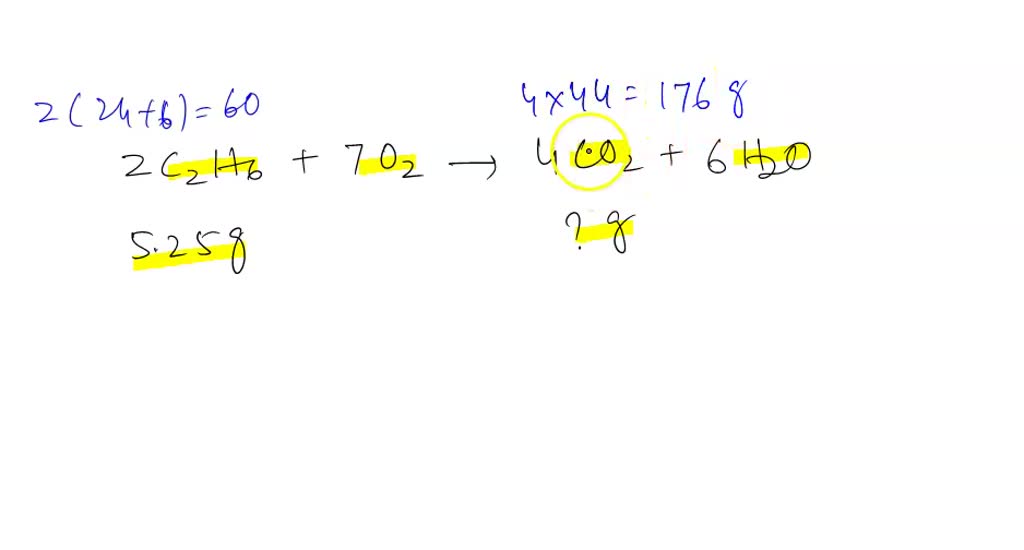 2(24+6)=60
4×44=176g
2C₂H₆ + 7O₂ → 4CO₂ + 6H₂O
5.25g
?g